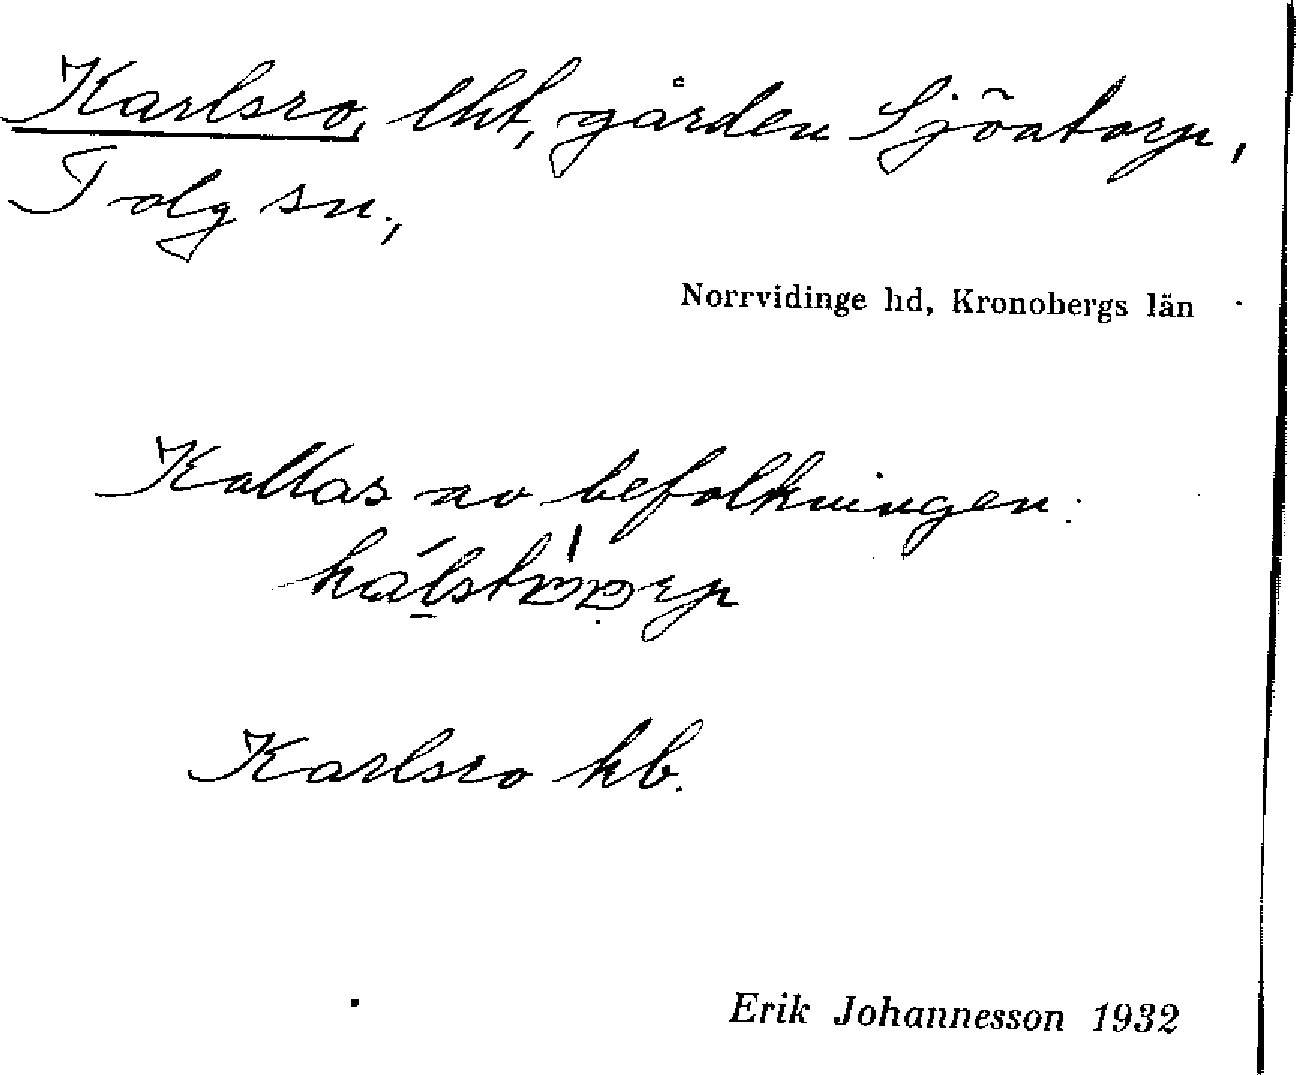 Karlsro, lht, gården Sjöatorp,
Tolg sn.,
Norrvidinge hd, Kronobergs län
Kallas av befolkningen:
Karlsro kb.
Erik Johannesson 1932